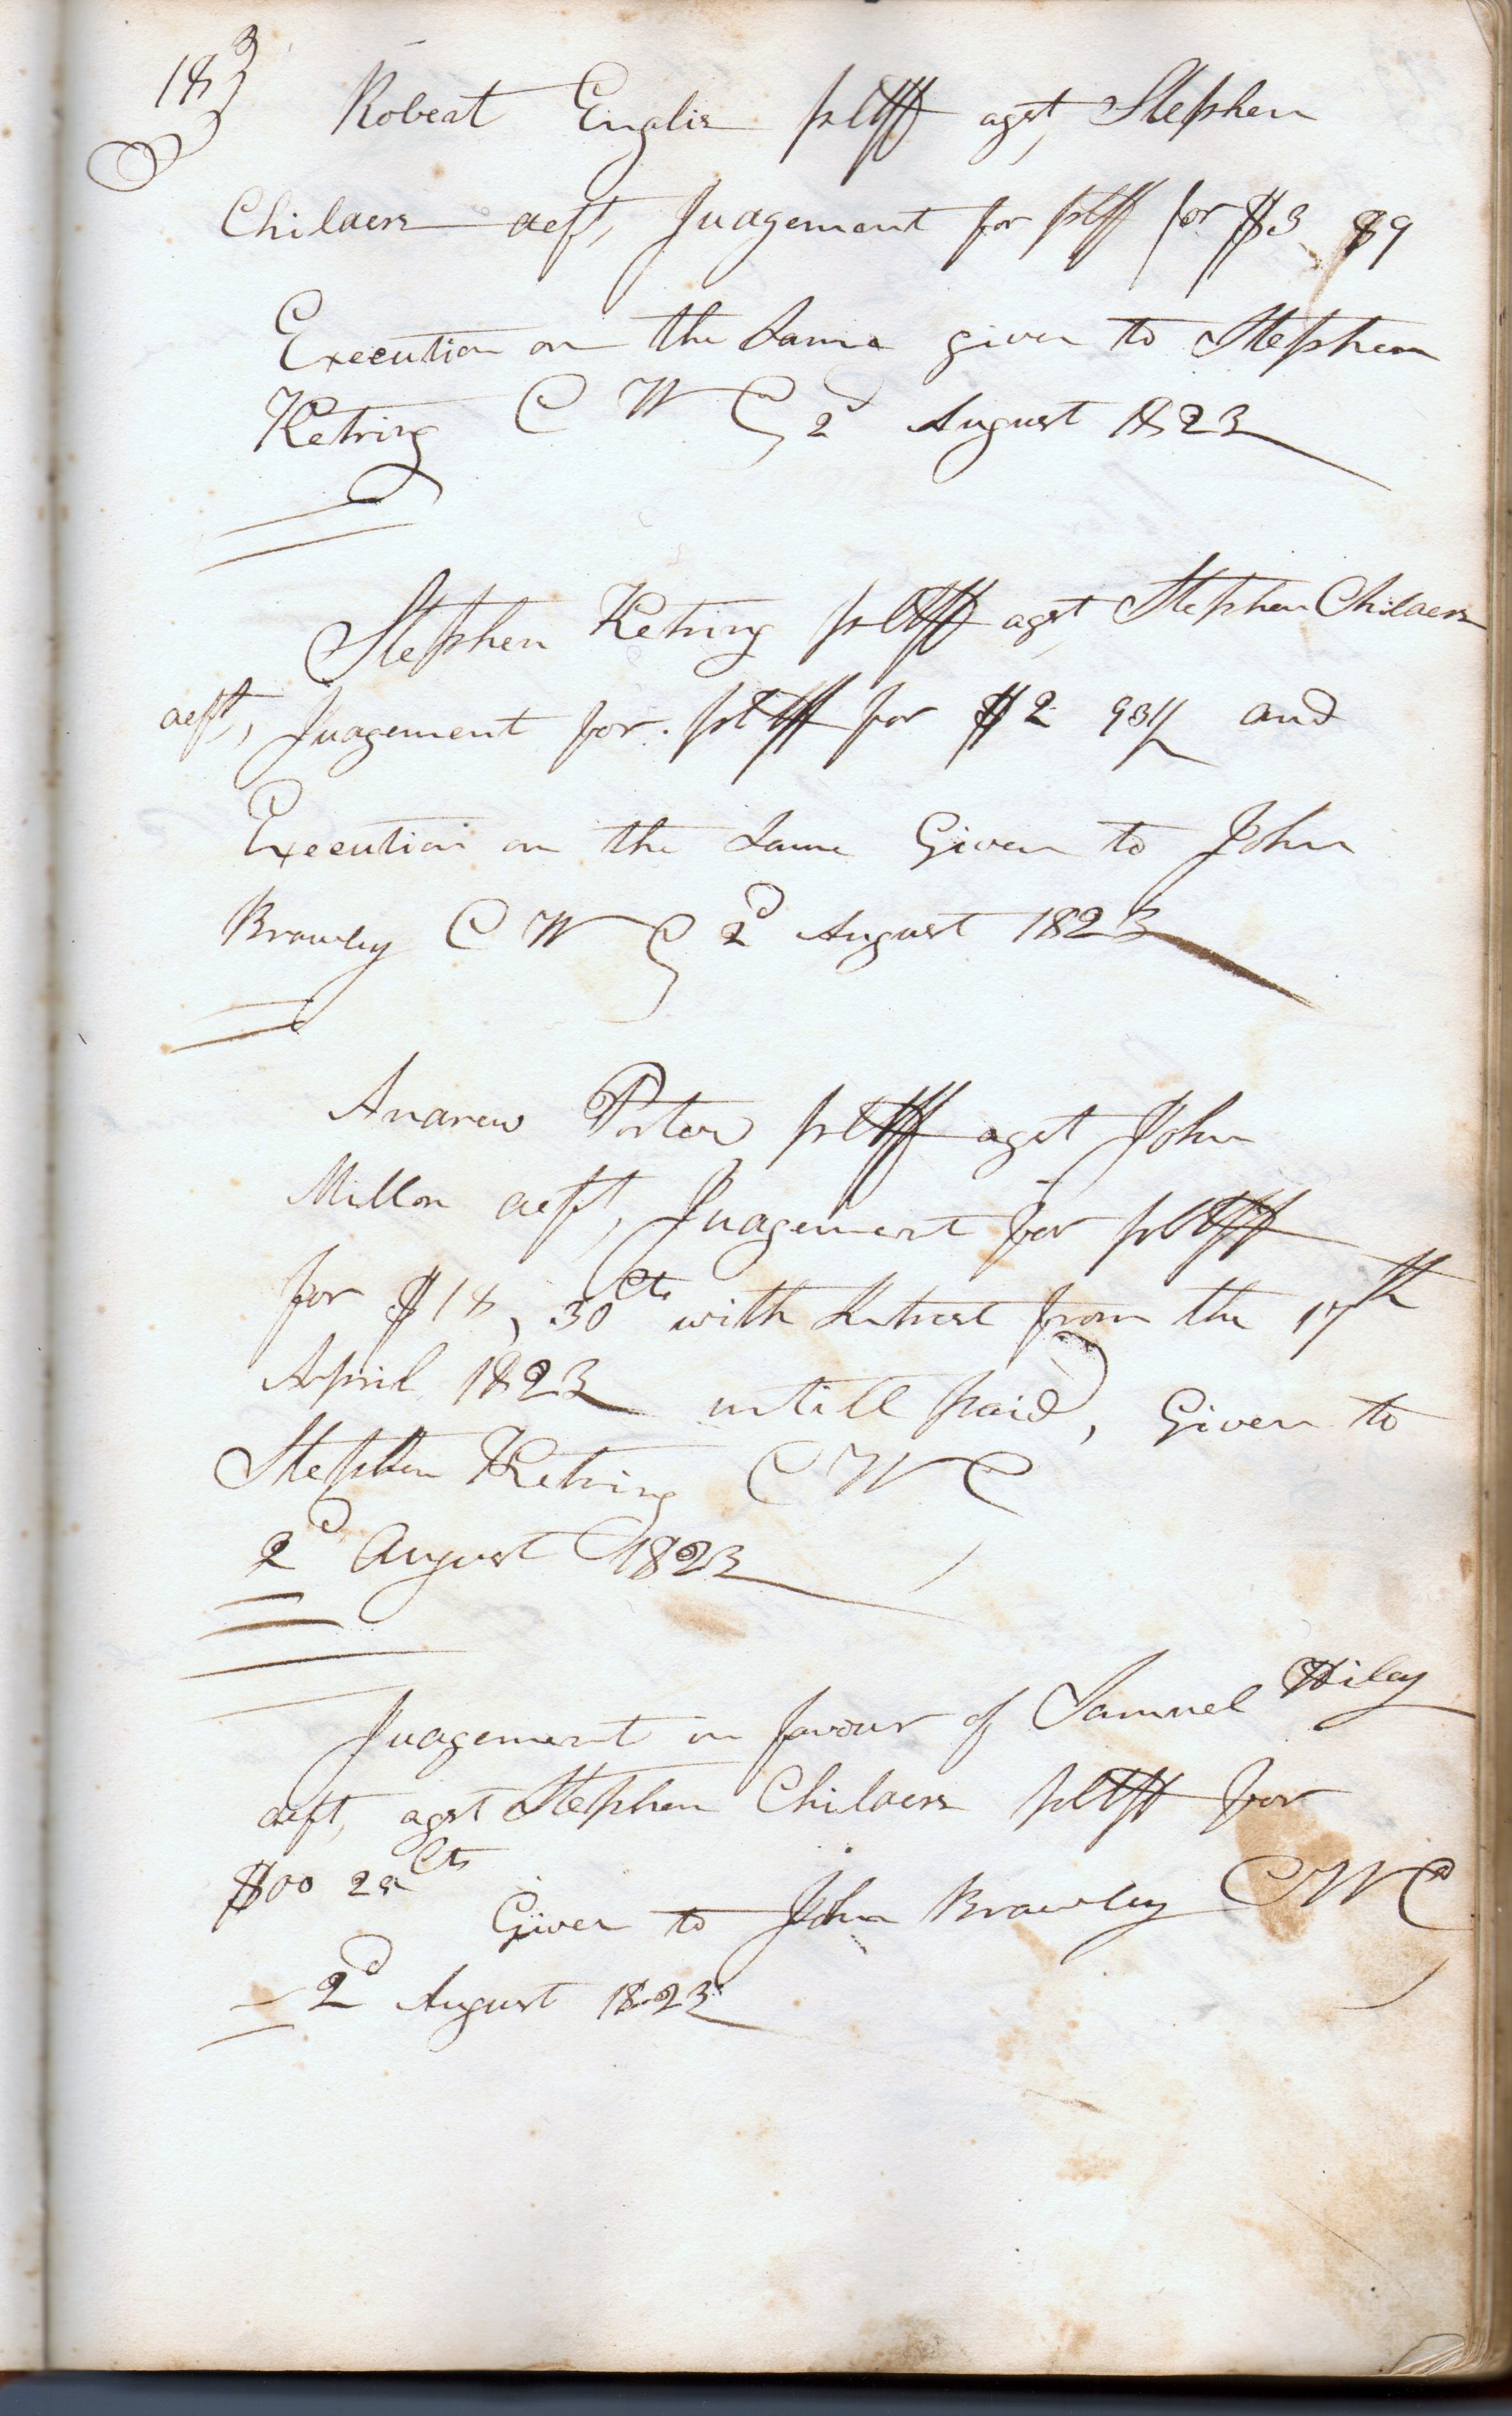 183
Robert Englis pltff agst, Stephen
Childers deft, Judgement for pltff for $3 89
Execution on the Same given to Stephen
Ketring C W C 2d August 1823
Stephen Ketring pltff agst Stephen Childers
deft, Judgement for pltff for $2 93½ and
Execution on the Same Given to John
Brawley C W C 2d August 1823
Andrew Porter pltff agst John
Millon deft, Judgement for pltff
for $18, 30 Cts with Intrest from the 17th
April 1823 untill paid, Given to
Stephen Ketring C W C
2d August 1823
Judgement in favour of Samuel Wiley
deft, agst Stephen Childers pltff for
$00 25 Cts
Given to John Brawley C W C
2d August 1823